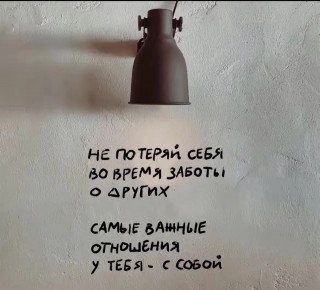 НЕ ПОТЕРЯЙ СЕБЯ
ВО ВРЕМЯ ЗАБОТЫ
О ДРУГИХ
САМЫЕ ВАЖНЫЕ
ОТНОШЕНИЯ
У ТЕБЯ - С СОБОЙ